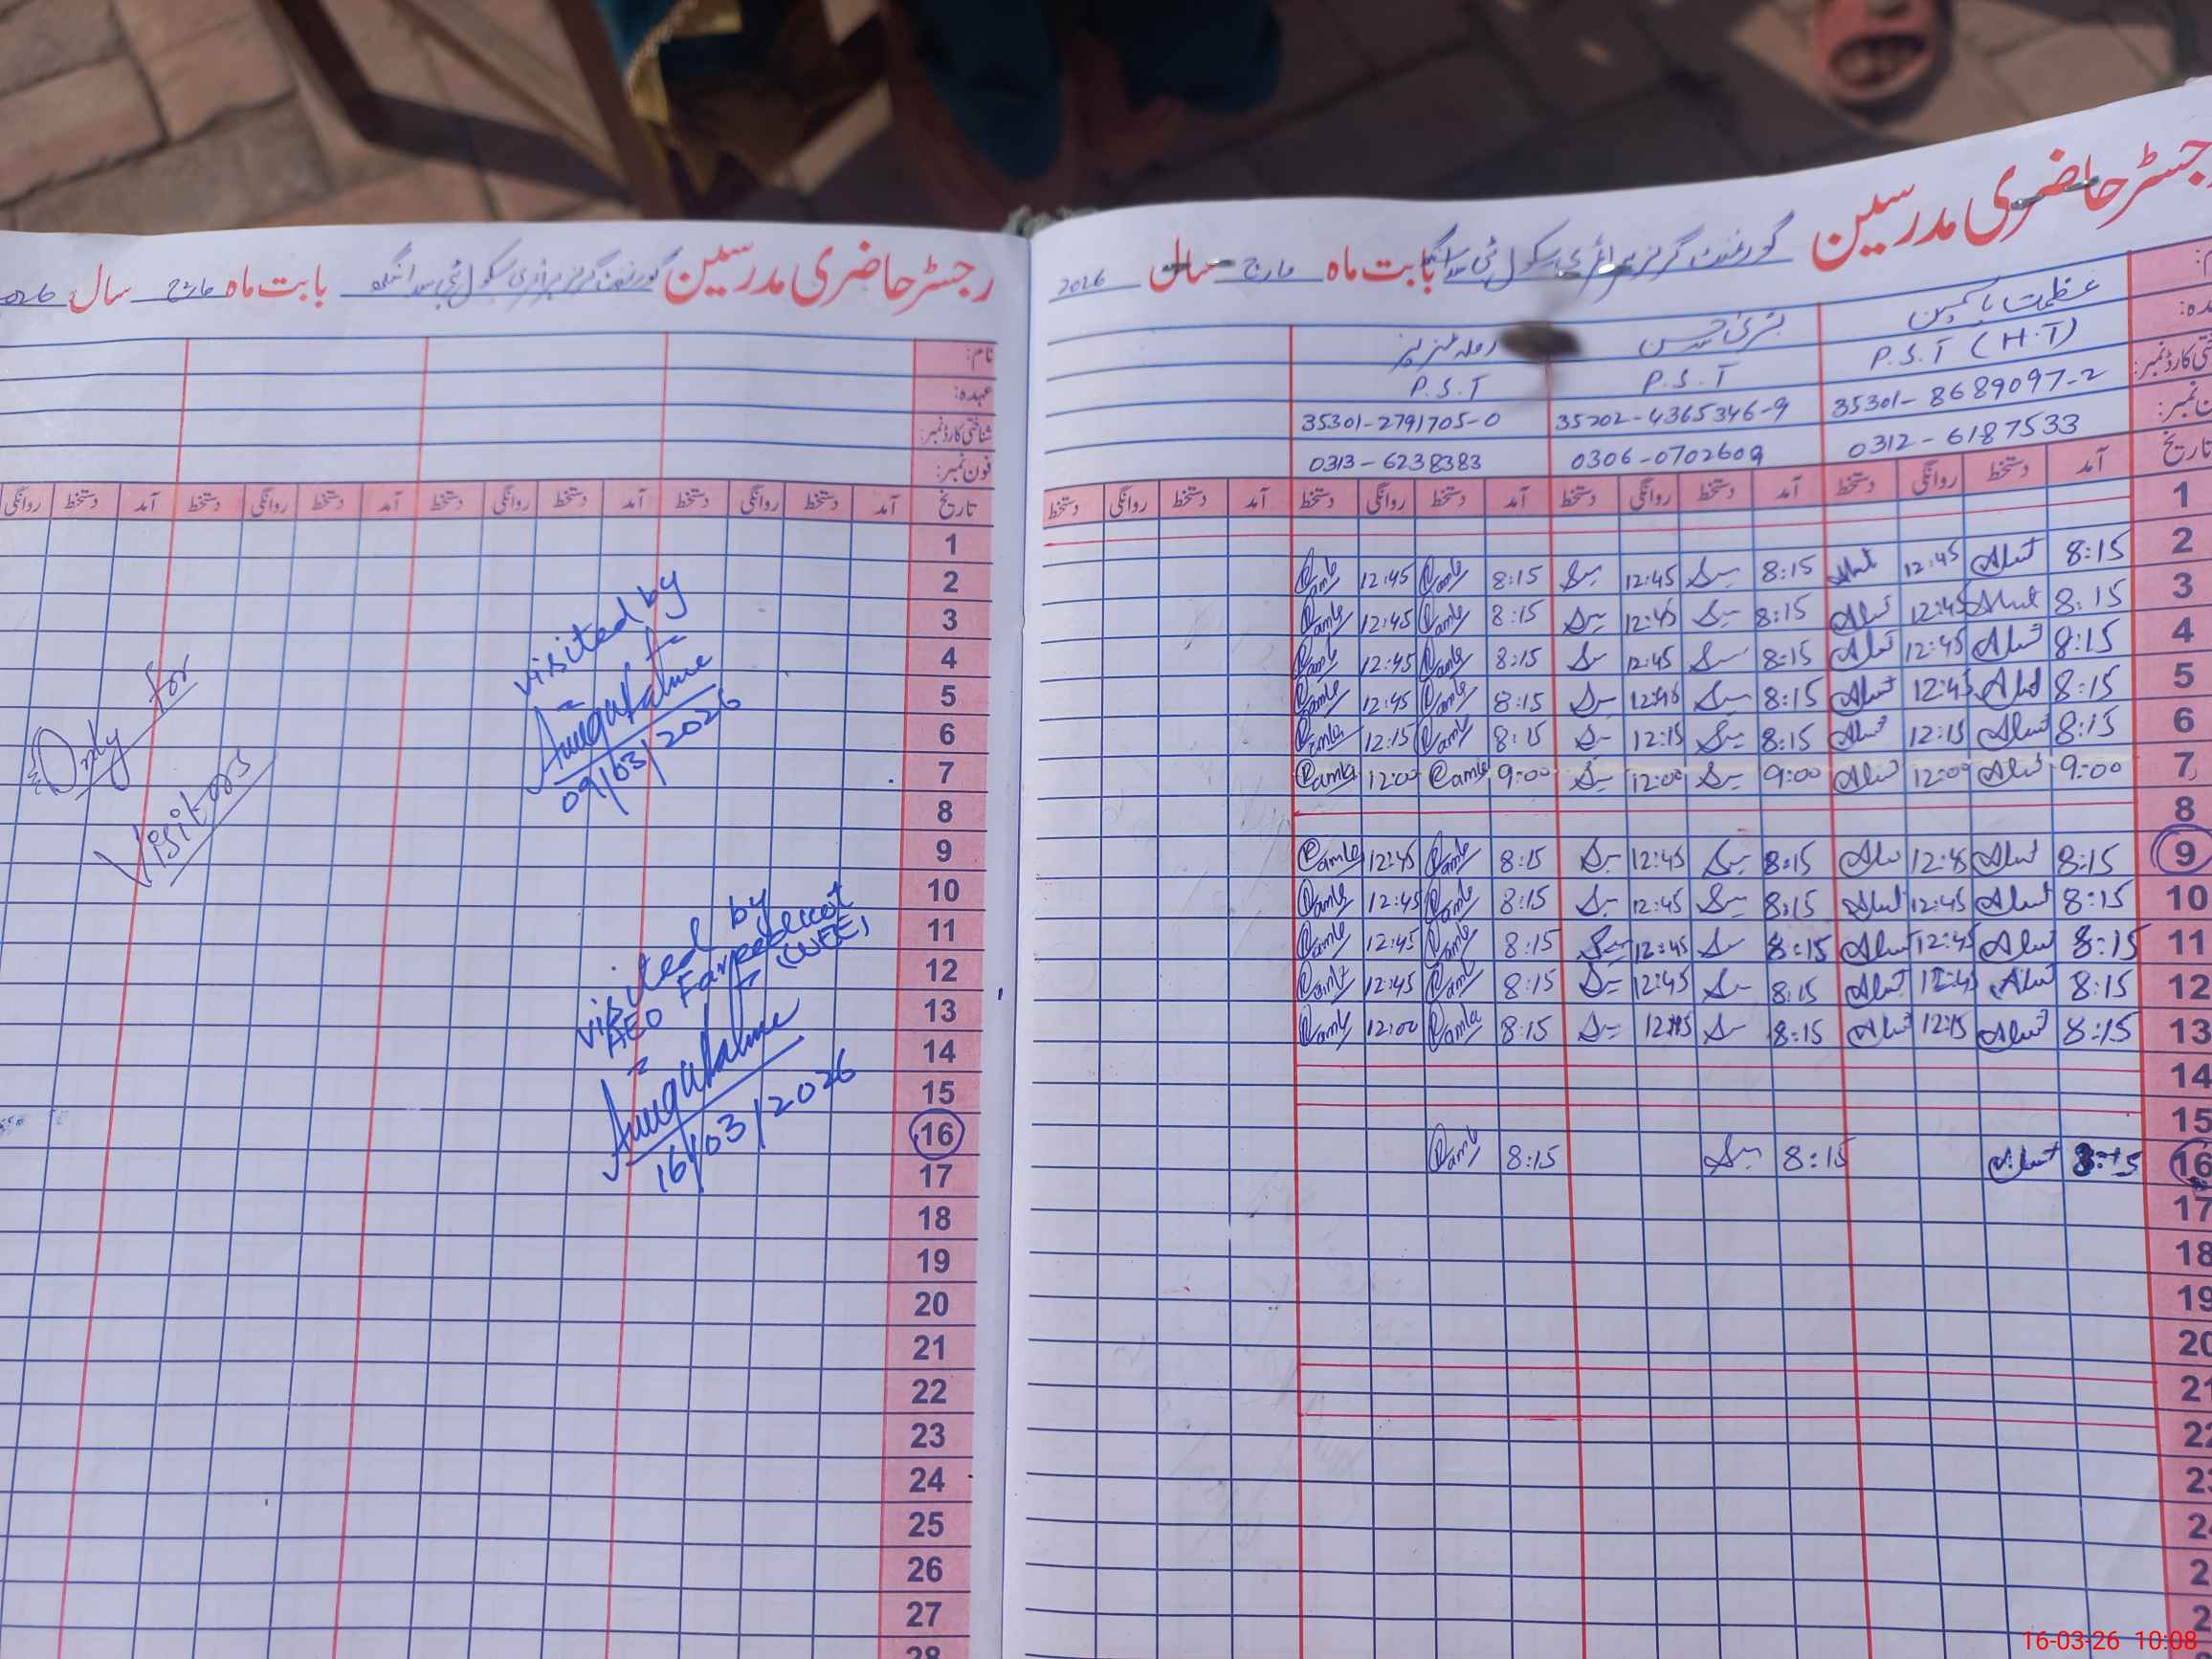 رجسٹر حاضری مدرسین گورنمنٹ گرلز پرائمری سکول بابت ماہ مارچ سال 2026
نام:
عہدہ:
شناختی کارڈ نمبر:
فون نمبر:
تاریخ آمد دستخط روانگی دستخط آمد دستخط روانگی دستخط آمد دستخط روانگی دستخط آمد دستخط روانگی
1
2
3
4
5
6
7
8
9
10
11
12
13
14
15
16
17
18
19
20
21
22
23
24
25
26
27
28
Only for
Visitors
visited by
09/03/2026
visited by
AEO
(WEE)
16/03/2026
رجسٹر حاضری مدرسین گورنمنٹ گرلز پرائمری سکول بابت ماہ مارچ سال 2026
عظمت یاسمین
P.S.T (H.T) P.S.T P.S.T
شناختی کارڈ نمبر: 35301-8689097-2 35202-4365346-9 35301-2791705-0
0312-6187533 0306-0702609 0313-6238383
تاریخ آمد دستخط روانگی دستخط آمد دستخط روانگی دستخط آمد دستخط روانگی دستخط آمد دستخط روانگی دستخط
1
2 8:15 12:45 8:15 12:45 8:15 12:45
3 8:15 12:45 8:15 12:45 8:15 12:45
4 8:15 12:45 8:15 12:45 8:15 12:45
5 8:15 12:45 8:15 12:45 8:15 12:45
6 8:15 12:15 8:15 12:15 8:15 12:15
7 9:00 12:00 9:00 12:00 9:00 12:00
8
9 8:15 12:45 8:15 12:45 8:15 12:45
10 8:15 12:45 8:15 12:45 8:15 12:45
11 8:15 12:45 8:15 12:45 8:15 12:45
12 8:15 12:45 8:15 12:45 8:15 12:45
13 8:15 12:15 8:15 8:15 12:00
14
15
16 8:15 8:15 8:15
17
18
19
20
21
22
16-03-26 10:08